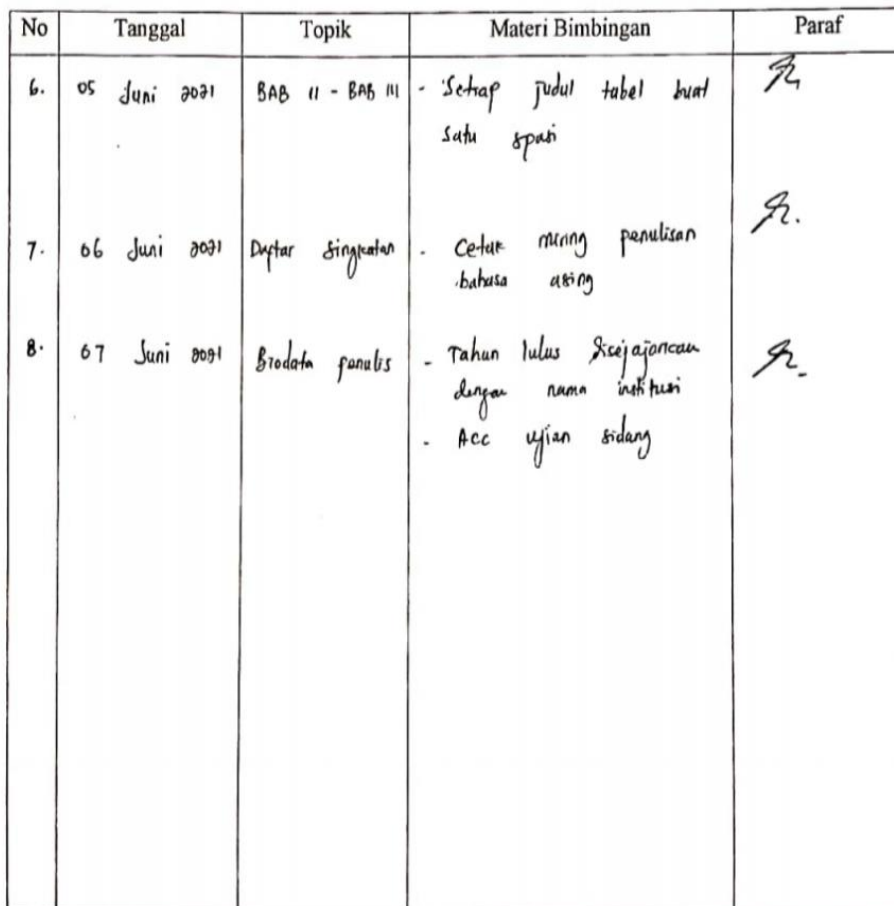 No Tanggal Topik Materi Bimbingan Paraf
6. 05 Juni 2021 BAB II - BAB III - Setiap judul tabel buat
satu spasi
7. 06 Juni 2021 Daftar Singkatan - Cetak miring penulisan
bahasa asing
8. 07 Juni 2021 Biodata penulis - Tahun lulus disejajarkan
dengan nama institusi
- Acc ujian sidang